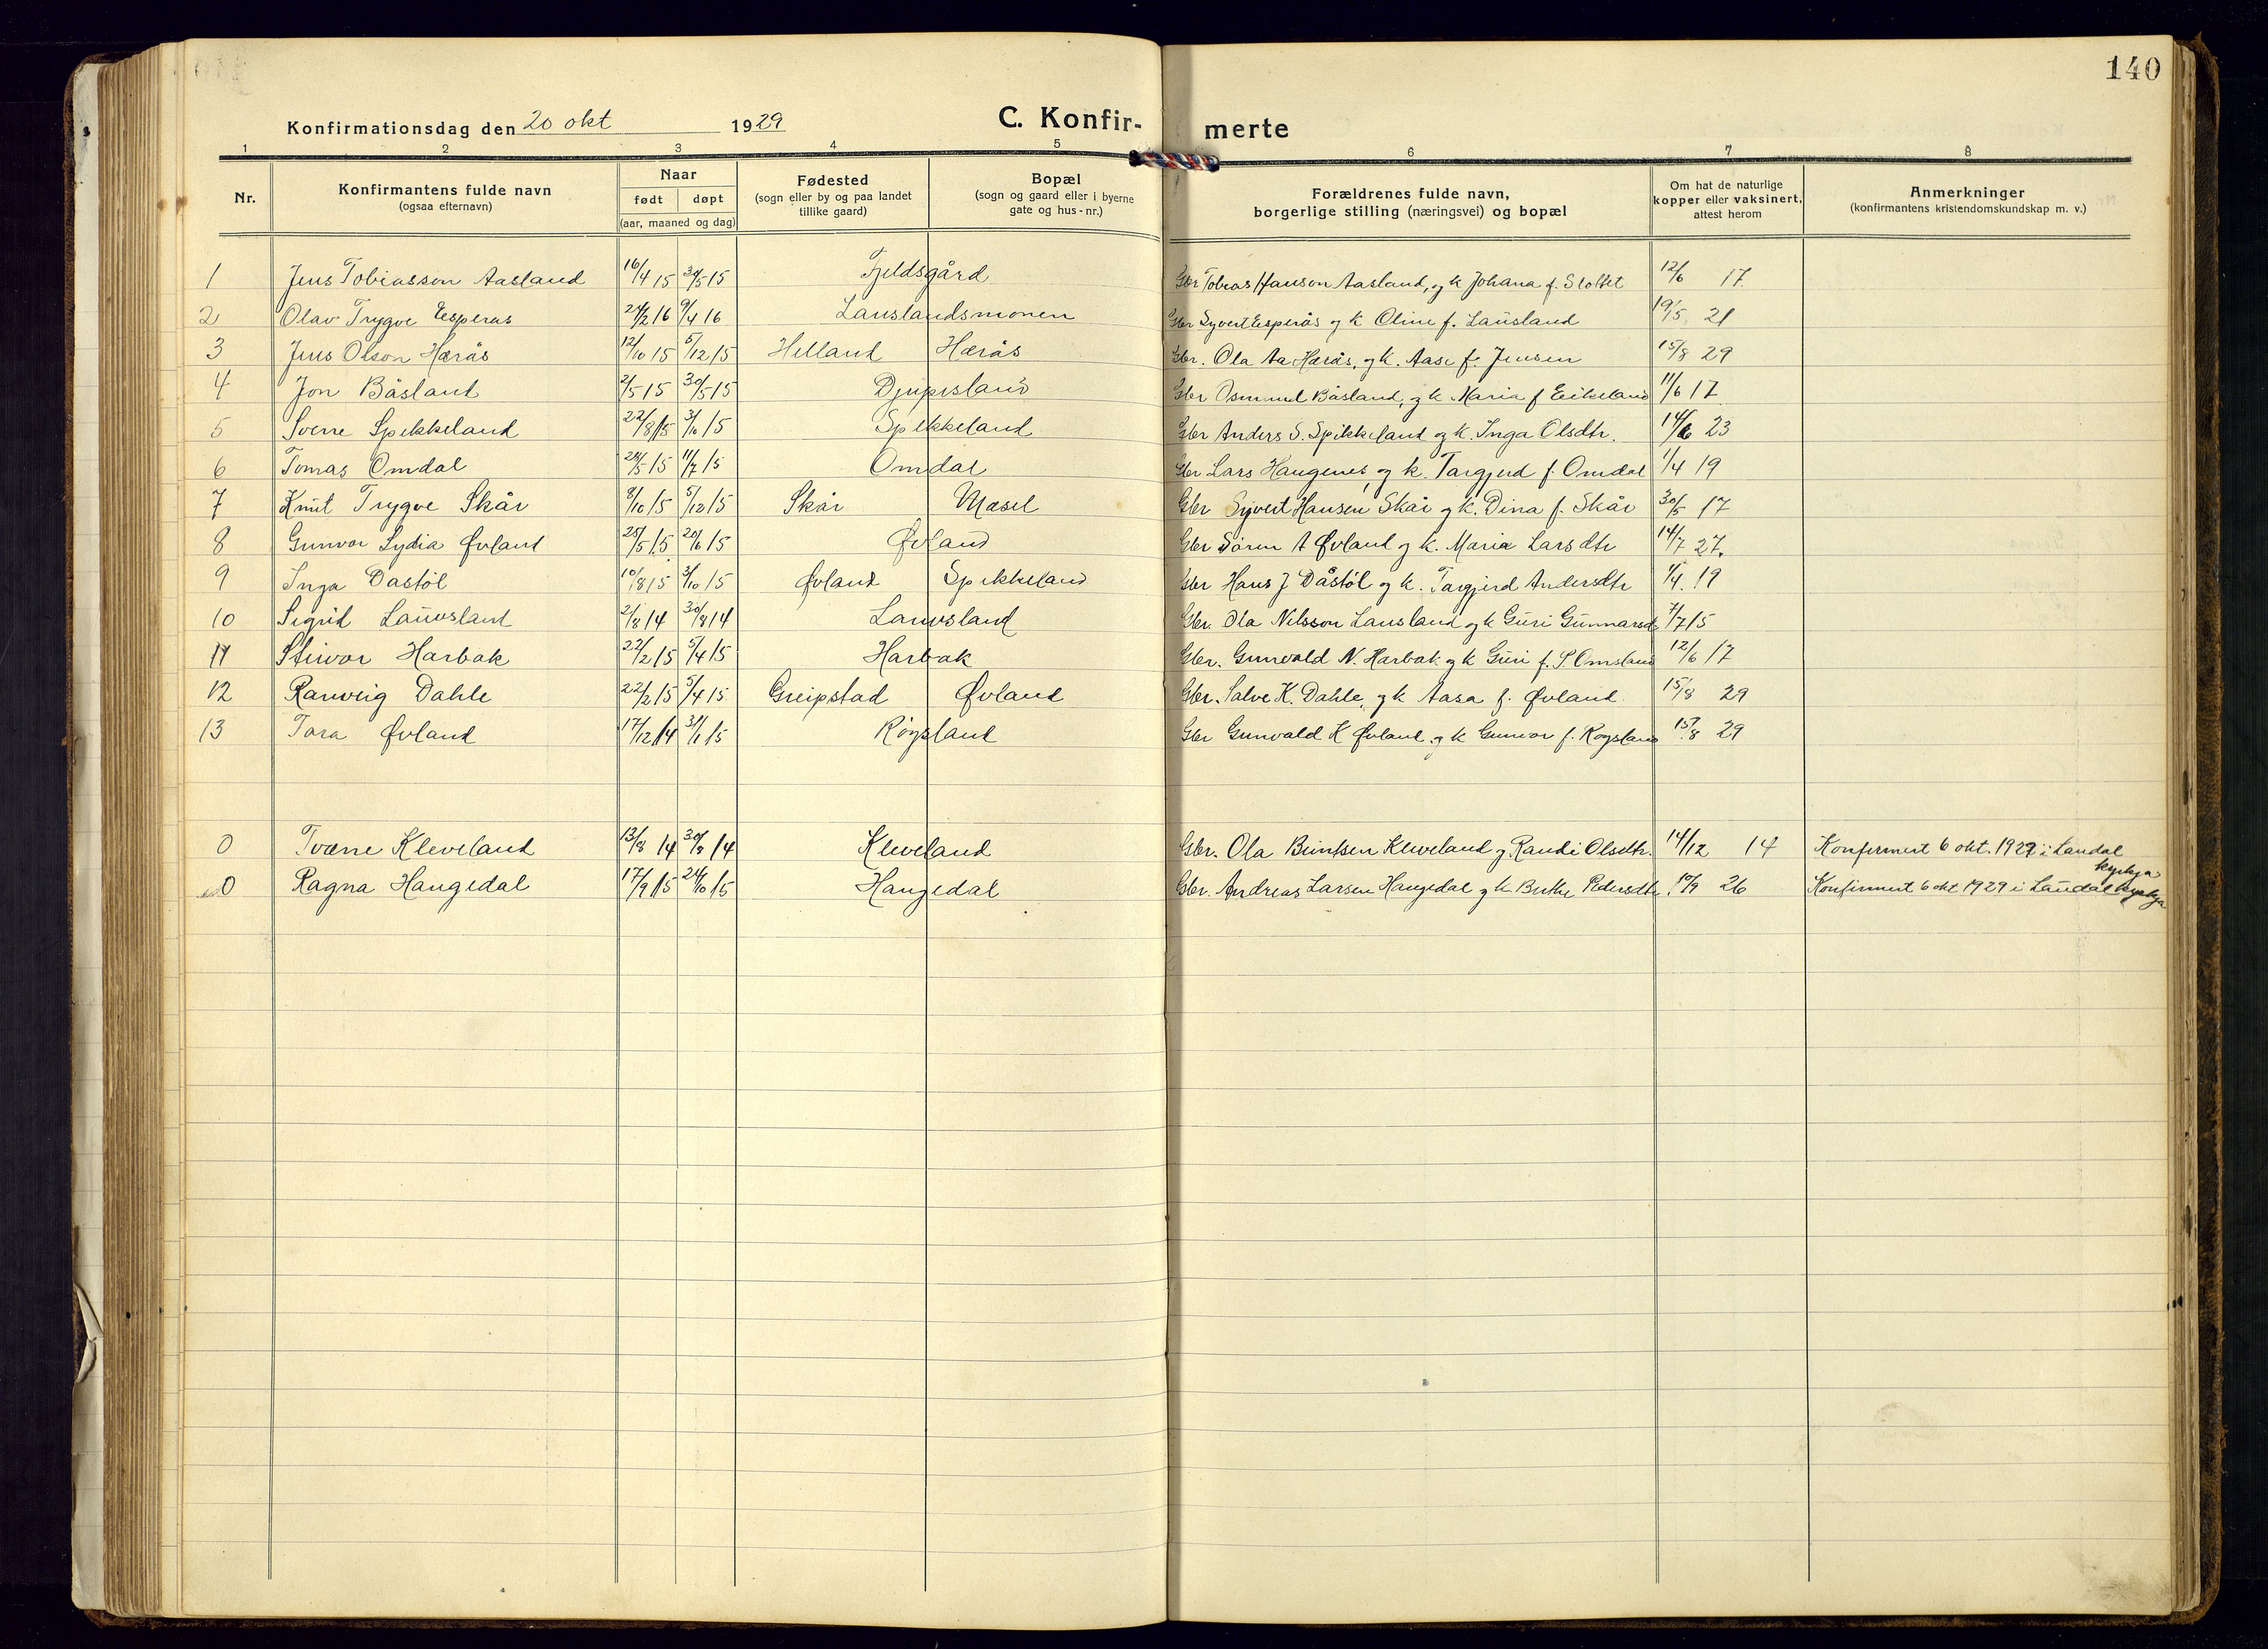 140
Konfirmationsdag den 20 okt 1929
C. Konfir- merte
1 2 3 4 5 6 7 8
Nr.
Konfirmantens fulde navn
(ogsaa efternavn)
Naar
født døpt
(aar, maaned og dag)
Fødested
(sogn eller by og paa landet
tillike gaard)
Bopæl
(sogn og gaard eller i byerne
gate og hus-nr.)
Forældrenes fulde navn,
borgerlige stilling (næringsvei) og bopæl
Om hat de naturlige
kopper eller vaksinert,
attest herom
Anmerkninger
(konfirmantens kristendomskundskap m. v.)
1 Jens Tobiasson Aasland 16/4 15 30/5 15 Fjeldsgård Gbr Tobias Hanson Aasland, og k Johana f. 12/6 17
2 Olav Trygve Esperås 24/2 16 9/4 16 Lauslandsmonen Gbr Syvert Esperås og k Oline f. Lausland 19/5 21
3 Jens Olson Hærås 12/10 15 5/12 15 Helland Hærås Gbr. Ola Aa Hærås, og k. Aase f. Jensen 15/8 29
4 Jon Båsland 2/5 15 30/5 15 Djupesland Gbr Osmund Båsland, og k Maria f Eikeland 11/6 17
5 Sverre Spikkeland 22/8 15 3/10 15 Spikkeland Gbr Anders S. Spikkeland og k. Inga Olsdtr. 14/6 23
6 Tomas Omdal 24/5 15 11/7 15 Omdal Gbr Lars Haugenes, og k. Targjerd f. Omdal 1/4 19
7 Knut Trygve Skår 8/10 15 5/12 15 Skår Mæsel Gbr Syvert Hansen Skår og k. Dina f. Skår 30/5 17
8 Gunvor Lydia Øvland 25/5 15 20/6 15 Øvland Gbr Søren A Øvland og k. Maria Larsdtr 14/7 27.
9 Inga Dåstøl 10/8 15 3/10 15 Øvland Spikkeland Gbr Hans J Dåstøl og k. Targjerd Andersdtr 1/4. 19
10 Sigrid Lauvsland 2/8 14 30/8 14 Lauvsland Gbr. Ola Nilsson Lausland og k Guri Gunnarsd 7/7 15
11 Harbak 22/2 15 5/4 15 Harbak Gbr. Gunvald N. Harbak og k Guri f. S. Omsland 12/6 17
12 Ranveig Dahle 22/2 15 5/4 15 Greipstad Øvland Gbr. Salve K. Dahle, og k Aasa f. Øvland 15/8 29
13 Tora Øvland 17/12 14 31/1 15 Røysland Gbr Gunvald K Øvland og k Gunvor f. Røysland 15/8 29
0 Tværre Kleveland 13/8 14 30/8 14 Kleveland Gbr. Ola Berntsen Kleveland og Randi Olsdtr. 14/12 14 Konfirmert 6 okt. 1929 i Laudal
kyrkja
0 Ragna Haugedal 17/9 15 24/10 15 Haugedal Gbr. Andreas Larsen Haugedal og k Berthe Pedersdtr. 10/9 26 Konfirmert 6 okt 1929 i Laudal kyrkja